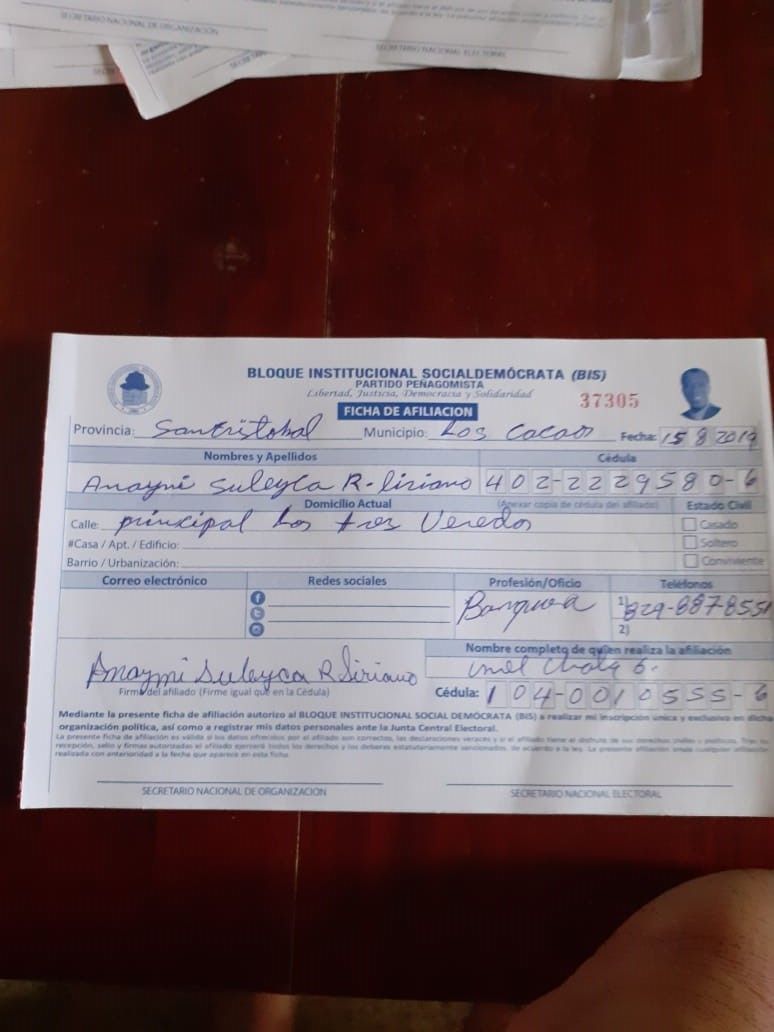 SECRETARIO NACIONAL DE ORGANIZACIÓN
SECRETARIO NACIONAL ELECTORAL
BLOQUE INSTITUCIONAL SOCIALDEMÓCRATA (BIS)
PARTIDO PEÑAGOMISTA
Libertad, Justicia, Democracia y Solidaridad
37305
FICHA DE AFILIACION
Provincia: San Cristobal Municipio: Los Cacaos Fecha: 15 8 2019
Nombres y Apellidos Cédula
Anaymi Suleyca R-liriano 402-2229580-6
Domicilio Actual (Anexar copia de cédula del afiliado) Estado Civil
Calle: principal Los tres Veredos Casado
#Casa / Apt. / Edificio: Soltero
Barrio / Urbanización: Conviviente
Correo electrónico Redes sociales Profesión/Oficio Teléfonos
1) 829-887-8551
2)
Nombre completo de quien realiza la afiliación
Anaymi Suleyca R Siriano
Firma del afiliado (Firme igual que en la Cédula) Cédula: 104-0010555-6
Mediante la presente ficha de afiliación autorizo al BLOQUE INSTITUCIONAL SOCIAL DEMÓCRATA (BIS) a realizar mi inscripción única y exclusiva en dicha
organización política, así como a registrar mis datos personales ante la Junta Central Electoral.
La presente ficha de afiliación es válida si los datos ofrecidos por el afiliado son correctos, las declaraciones veraces y si el afiliado tiene el disfrute de sus derechos civiles y políticos. Tras la
recepción, sello y firmas autorizadas el afiliado ejercerá todos los derechos y los deberes estatutariamente sancionados, de acuerdo a la ley. La presente afiliación anula cualquier afiliación
realizada con anterioridad a la fecha que aparece en esta ficha.
SECRETARIO NACIONAL DE ORGANIZACIÓN SECRETARIO NACIONAL ELECTORAL